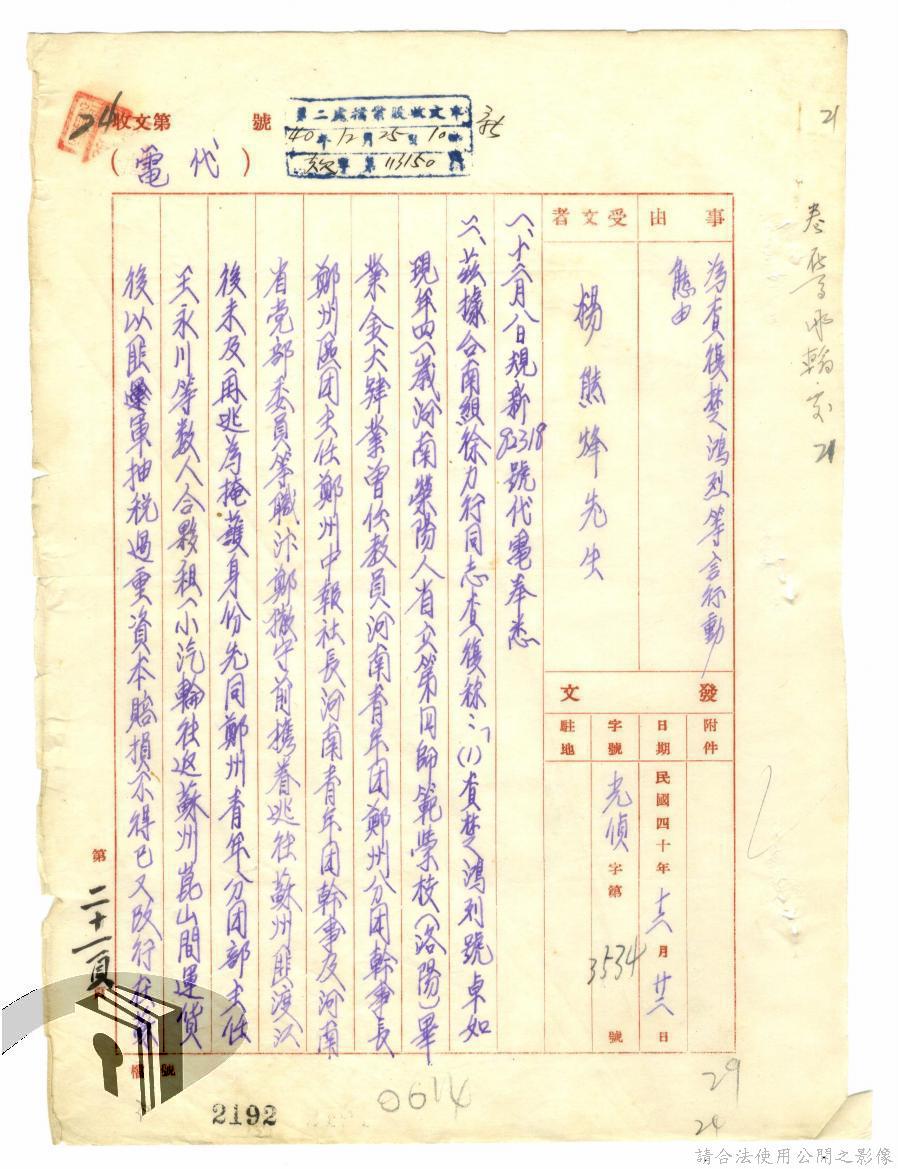 收文第 號
24
(代電)
第二處檔案股收文章
40年12月25日10時
字第113150號
事由
為查復楚鴻烈等言行動
態由
受文者
楊熊烽先生
發文
附件
日期
民國四十年十二月廿二日
字號
光偵字第3534號
駐地
一、十二月八日規新92318號代電奉悉
二、茲據台南組徐力行同志查復称:「(1)查楚鴻烈號卓如
現年四一歲河南滎陽人省立第四師範學校(洛陽)畢
業金大肄業曾任教員河南青年团鄭州分团幹事長
鄭州區团主任鄭州中報社長河南青年团幹事及河南
省党部委員等職汴鄭撤守前携眷逃往蘇州匪渡江
後未及再逃為掩護身份先同鄭州青年分团部主任
王永川等数人合夥租一小汽輪往返蘇州崑山間運貨
後以匪軍抽税過重資本賠損不得已又改行在蘇
第二十一頁
檔號
2192
0614
29
24
21
21
請合法使用公開之影像